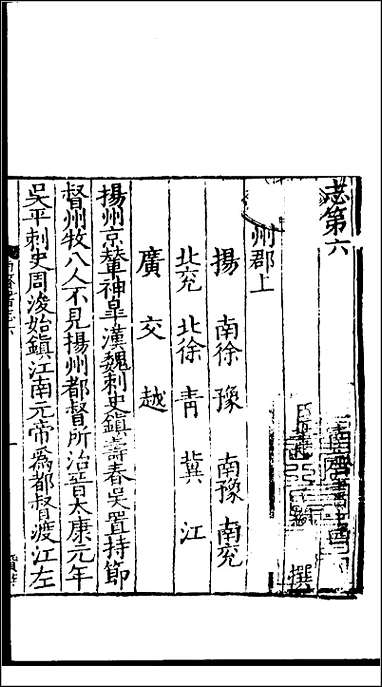 志第六
南齊書十四
撰
州郡上
揚 南徐 豫 南豫 南兖
北兖 北徐 青 冀 江
廣 交 越
揚州京輦神臯漢魏刺史鎮壽春吳置持節
督州牧八人不見揚州都督所治晉太康元年
吳平刺史周浚始鎮江南元帝爲都督渡江左